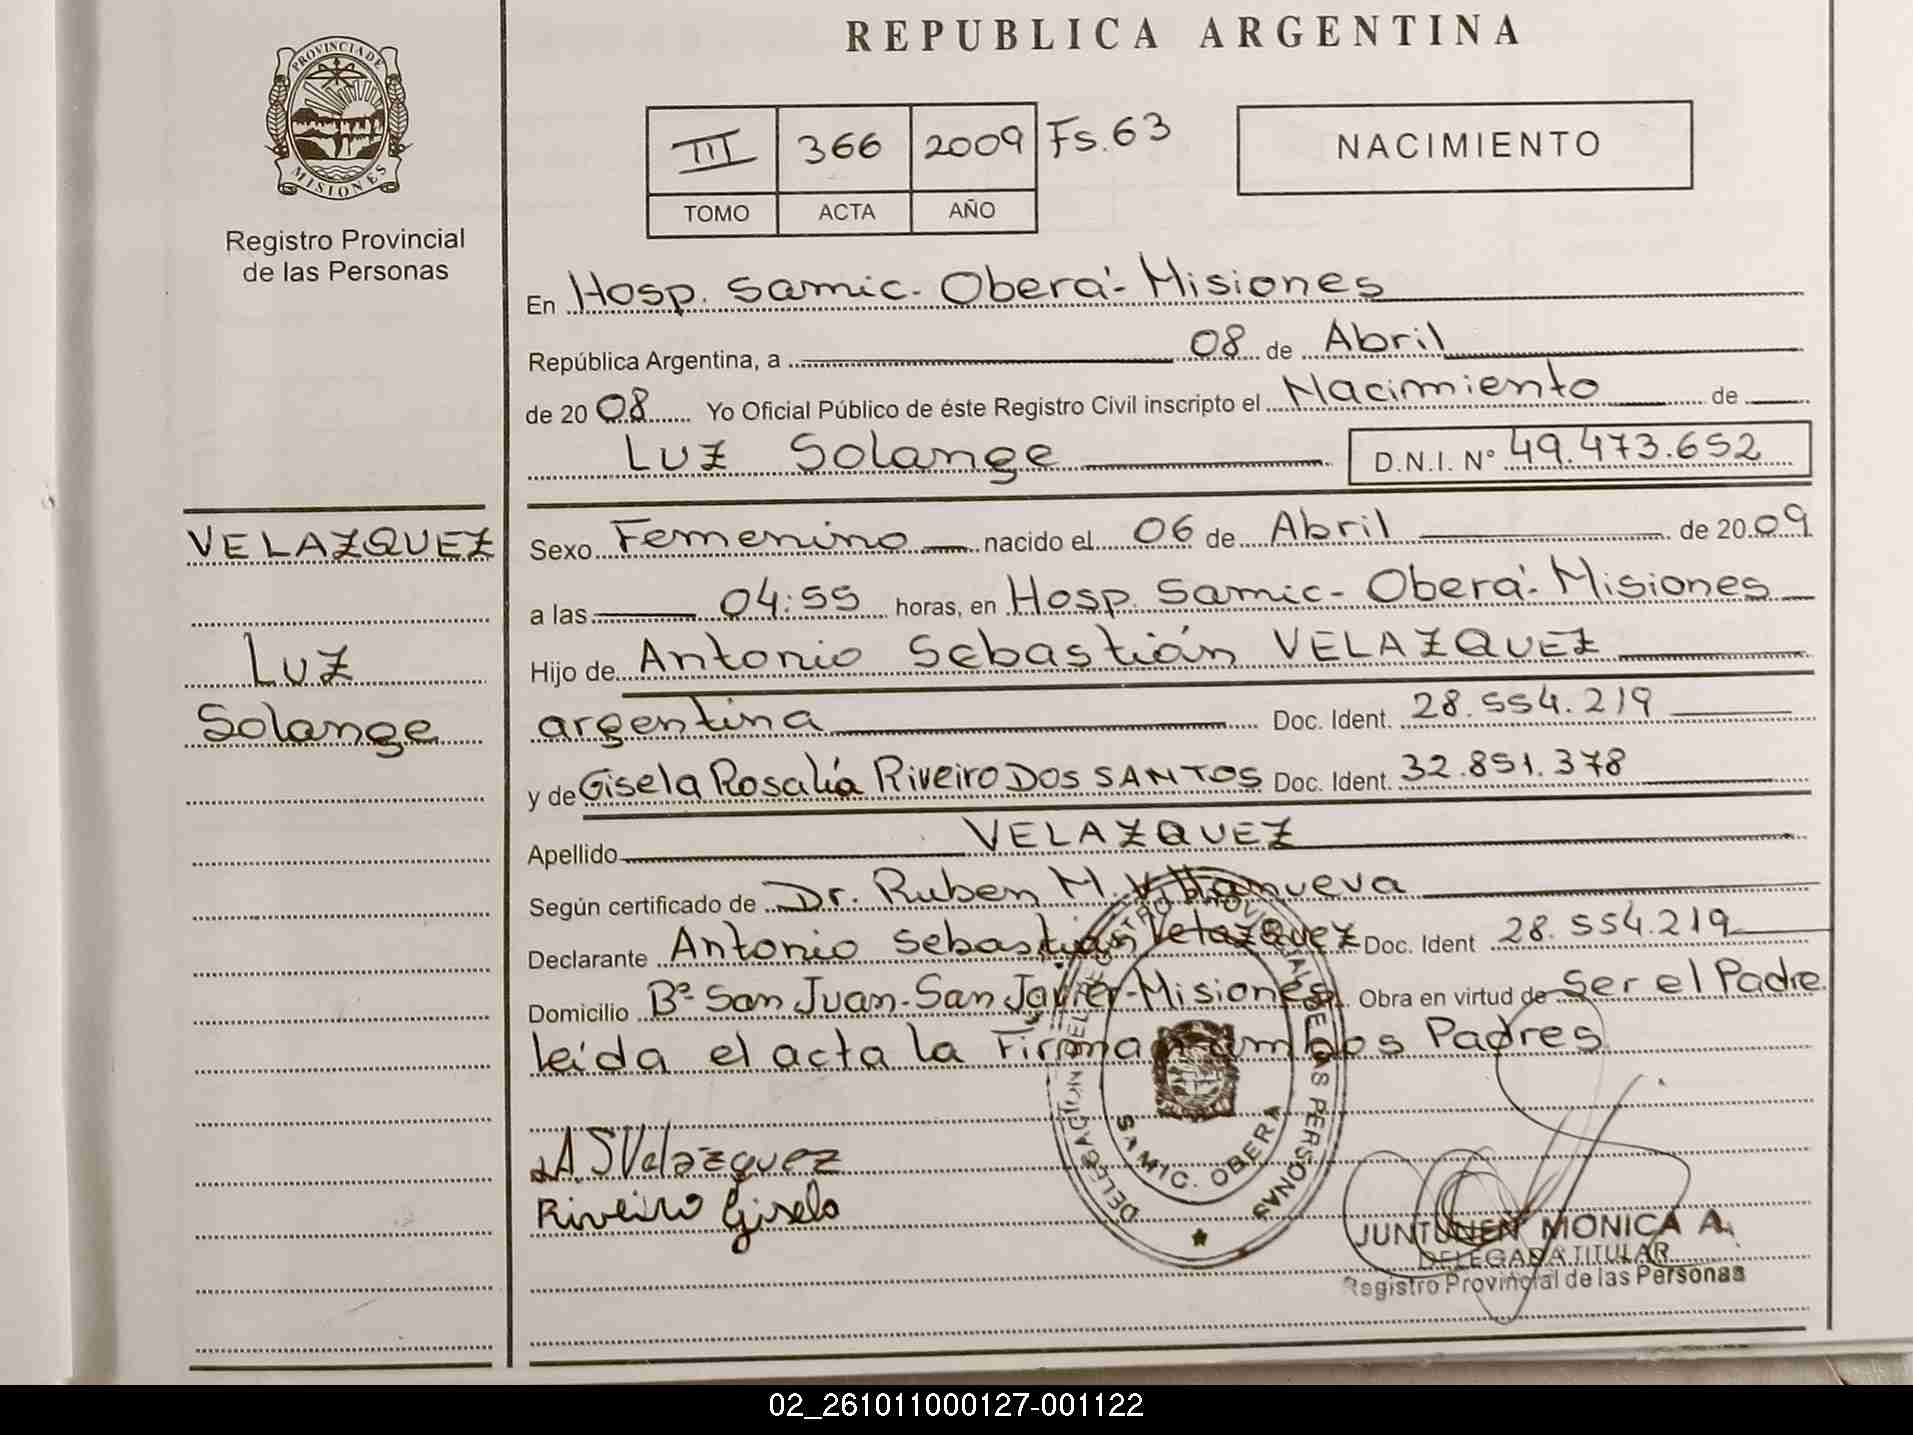 REPUBLICA ARGENTINA
PROVINCIA DE
MISIONES
Registro Provincial
de las Personas
III 366 2009 Fs. 63
TOMO ACTA AÑO
NACIMIENTO
En Hosp. Samic. Oberá - Misiones
República Argentina, a 08 de Abril
de 20 08 Yo Oficial Público de éste Registro Civil inscripto el Nacimiento de
Luz Solange D.N.I. N° 49.473.652
VELAZQUEZ
Luz
Solange
Sexo Femenino nacido el 06 de Abril de 20 09
a las 04:55 horas, en Hosp. Samic - Oberá - Misiones
Hijo de Antonio Sebastián VELAZQUEZ
argentina Doc. Ident. 28.554.219
y de Gisela Rosalía Riveiro DOS SANTOS Doc. Ident. 32.851.378
Apellido VELAZQUEZ
Según certificado de Dr. Ruben M. Villanueva
Declarante Antonio Sebastián Velazquez Doc. Ident 28.554.219
Domicilio B° San Juan - San Javier - Misiones Obra en virtud de Ser el Padre
leída el acta la Firman ambos Padres
A. S Velazquez
Riveiro Gisela
DELEGACION DEL REGISTRO PROVINCIAL DE LAS PERSONAS
SAMIC. OBERA
JUNTUNEN MONICA A.
DELEGADA TITULAR
Registro Provincial de las Personas
02_261011000127-001122